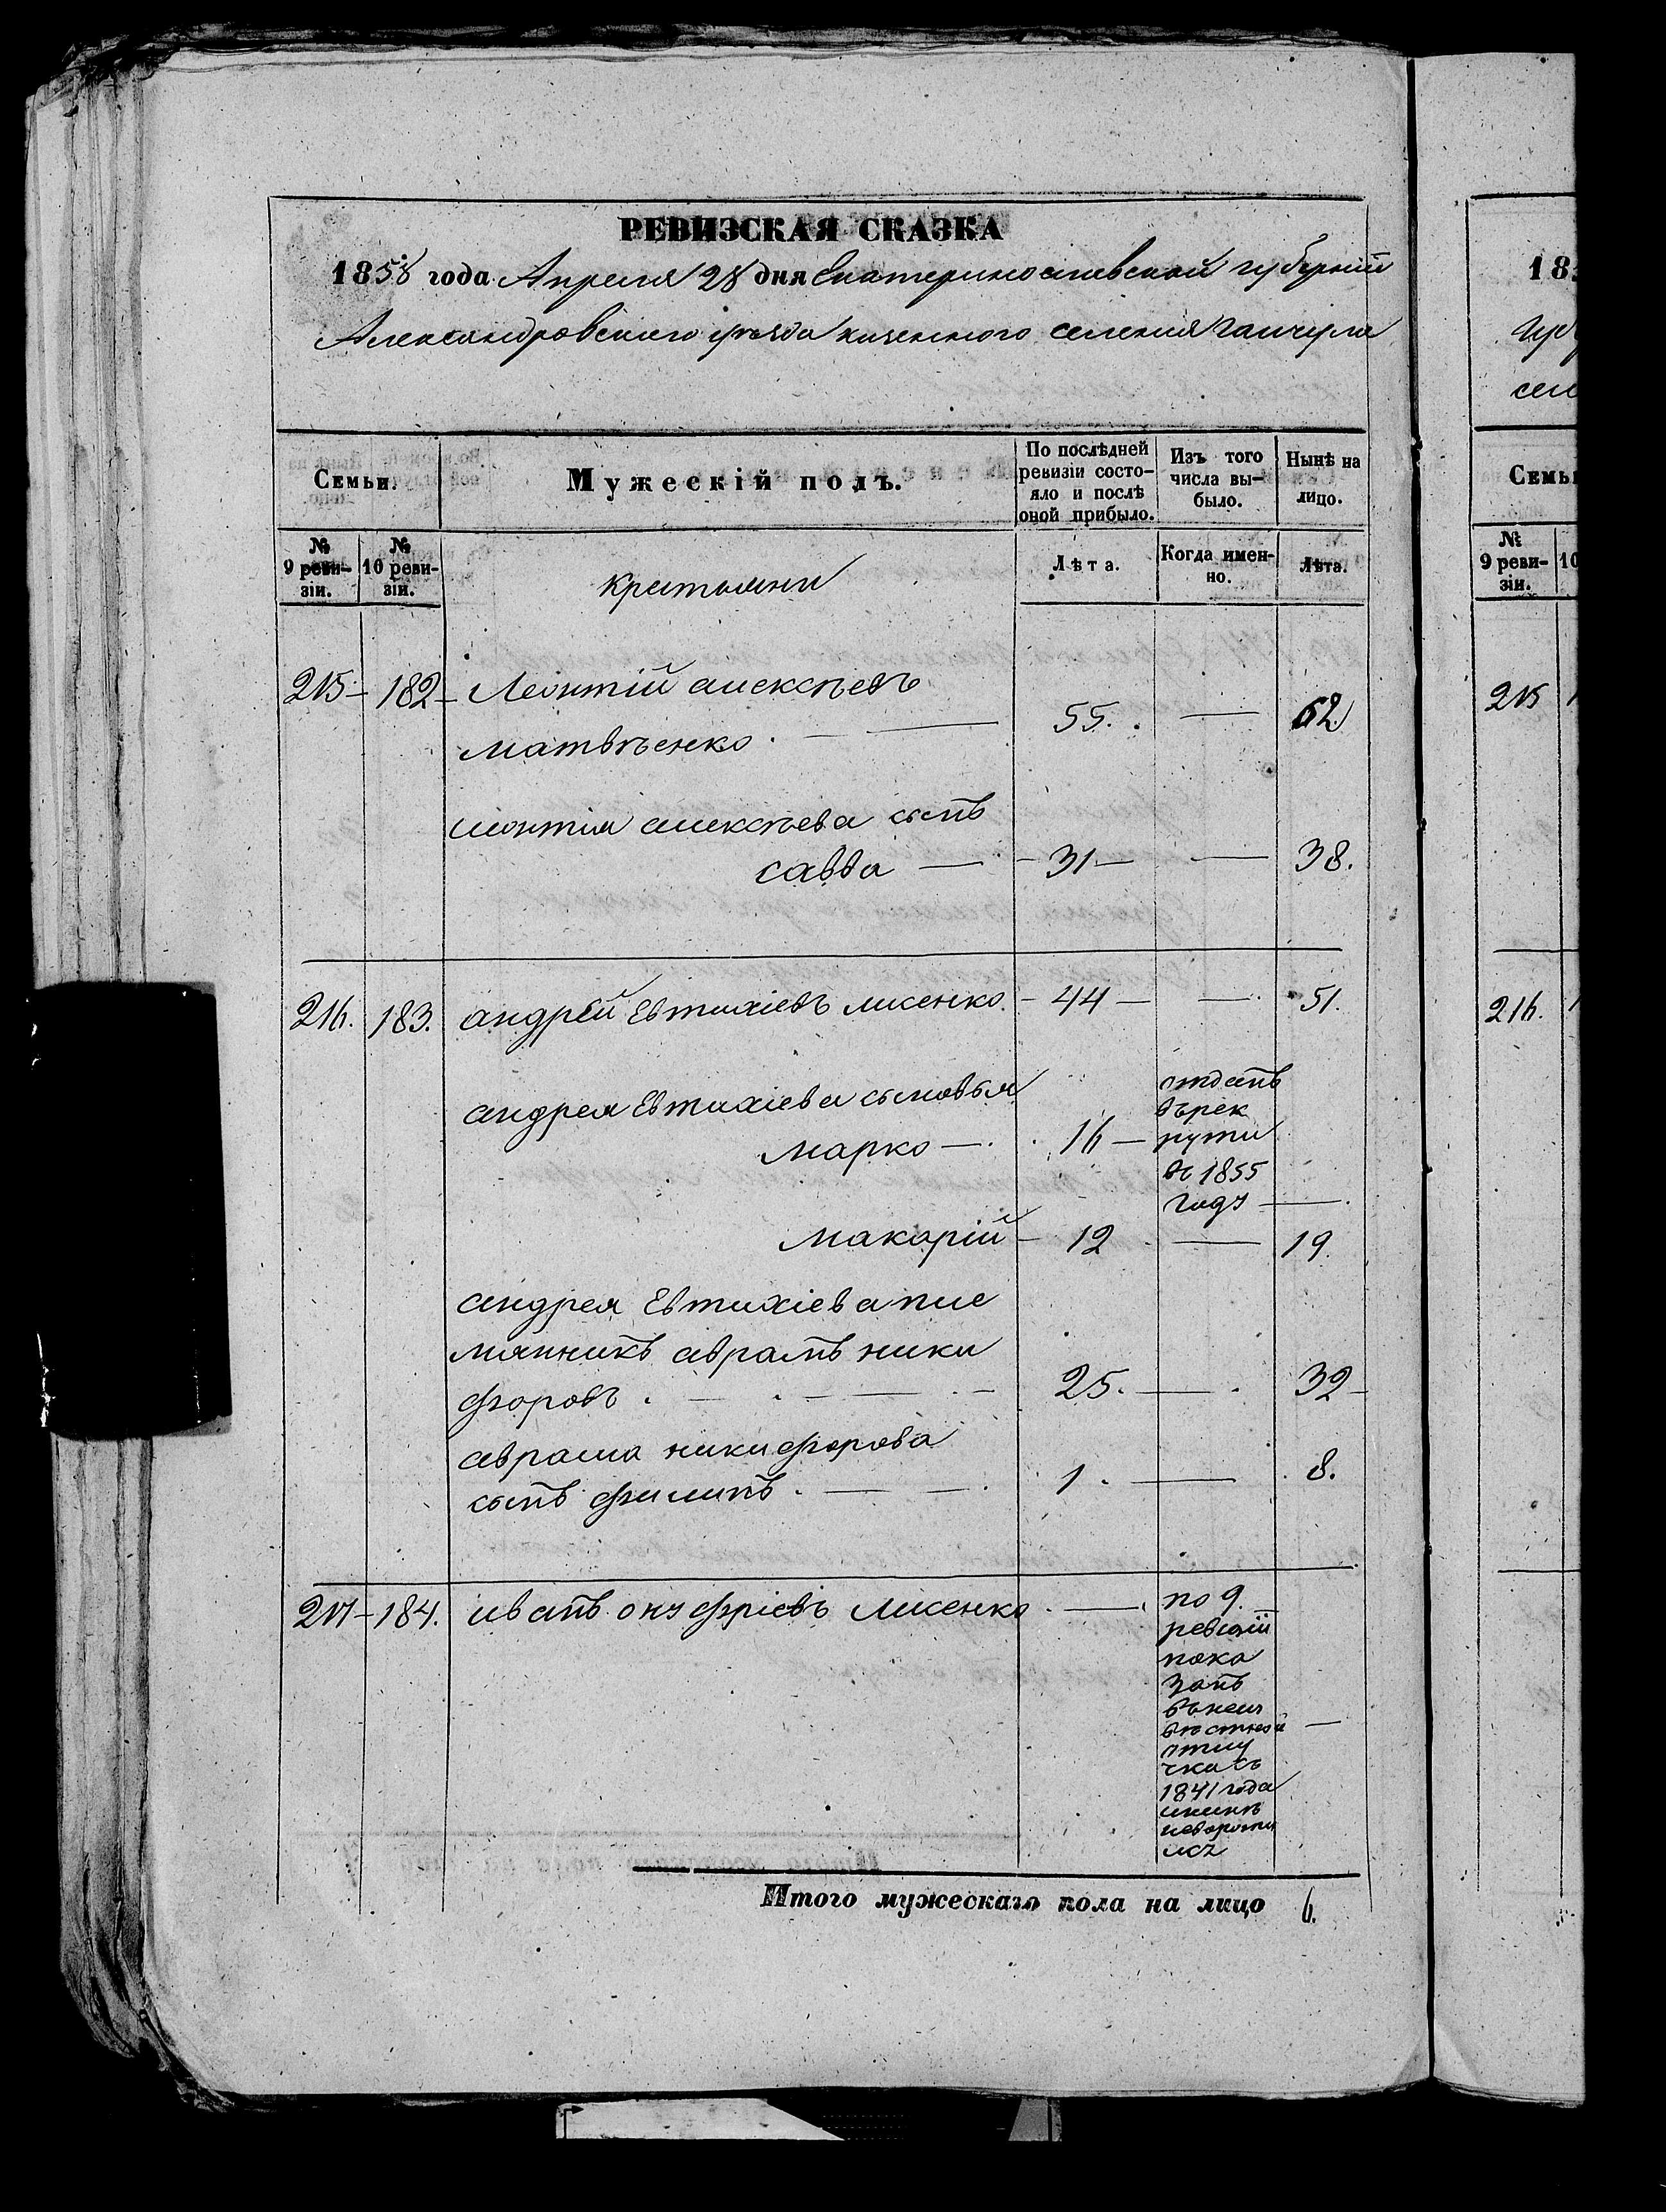 РЕВИЗСКАЯ СКАЗКА
1858 года Апреля 28 дня Екатеринославской губерніи
Александровскаго уезда казенного селения Гайчула
Семьи.
Мужескій полъ.
По послѣдней ревизіи состо-
яло и послѣ
оной прибыло.
Изъ того
числа вы-
было.
Нынѣ на
лицо.
№
9 реви-
зіи.
№
10 реви-
зіи.
крестьяни
Лѣта.
Когда имен-
но.
Лѣта.
215 182 Леонтій алексѣевъ
матвѣенко 55. 62
леонтія алексѣева сынъ
савва 31 38.
216. 183. андрей Евтихіевъ лисенко 44 51.
андрея Евтихіева сыновья
марко 16
отданъ
въ рек
рути
въ 1855
году
макарій 12 19.
андрея Евтихіева пле
мянникъ аврамъ ники
форовъ 25. 32
аврама никифорова
сынъ филипъ 1. 8.
217 184. иванъ онуфріевъ лисенко
по 9.
ревизіи
пока
занъ
въ неиз
вѣстной
отлу
чка съ
1841 года
и нинѣ
невороти
лся
Итого мужескаго пола на лицо 6.
18
губ
сел
Семьи
№
9 реви-
зіи.
10
215
216.